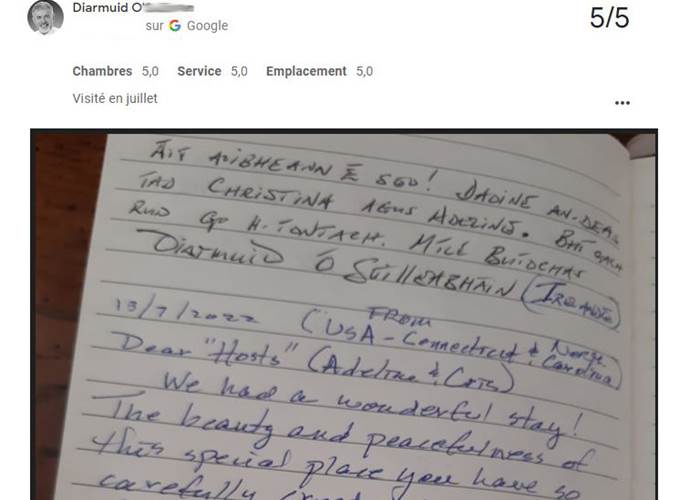 Diarmuid O'
sur Google
5/5
Chambres 5,0 Service 5,0 Emplacement 5,0
Visité en juillet
ÁIT AOIBHEANN É SEO! DAOINE AN-DEAS
IAD CHRISTINA AGUS ADELINE. BHÍ GACH
RUD GO H-IONTACH. MÍLE BUÍOCHAS
DIARMUID Ó SÚILLEABHÁIN (IRELAND)
13/7/2022 (FROM USA - Connecticut & North Carolina)
Dear "Hosts" (Adeline & Cris)
We had a wonderful stay!
The beauty and peacefulness of
this special place you have so
carefully